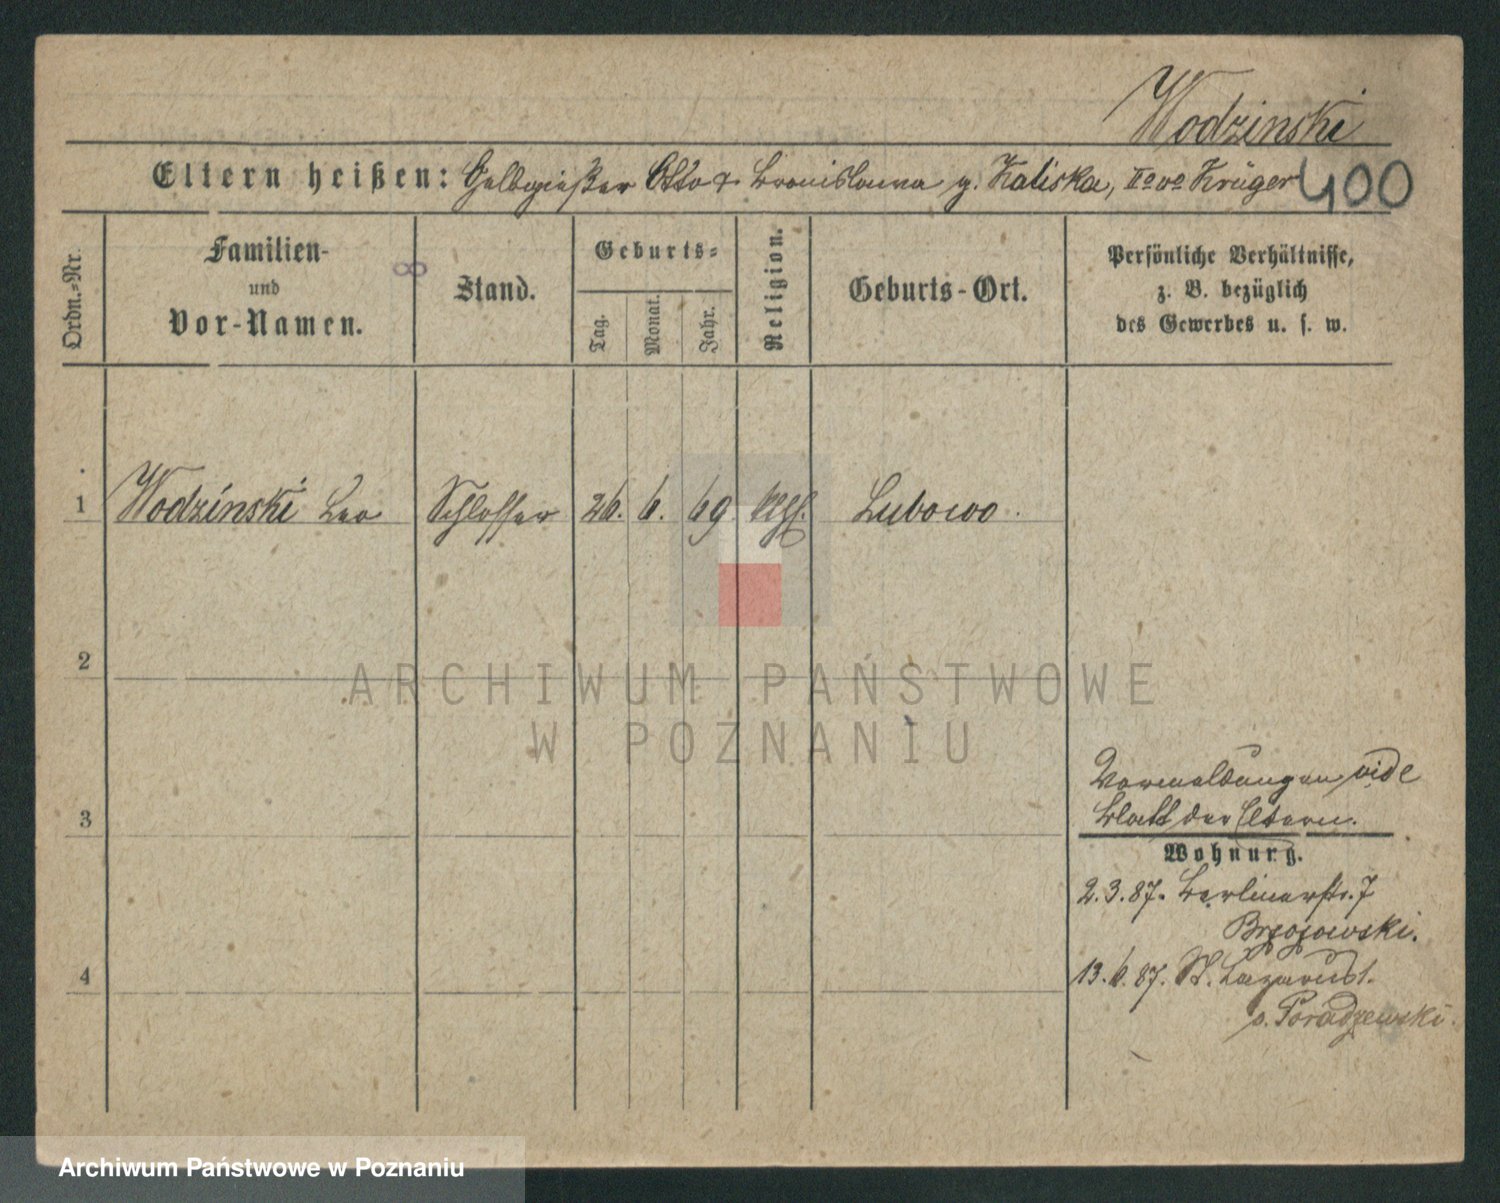 Wodzinski
Eltern heißen: Gelbgießer Otto & Bronislawa g. Kaliska, IIo vo Krüger 400
Ordn.-Nr.
Familien-
und
Vor-Namen.
8
Stand.
Geburts-
Tag.
Monat.
Jahr.
Religion.
Geburts-Ort.
Persönliche Verhältnisse,
z. B. bezüglich
des Gewerbes u. s. w.
1 Wodzinski Leo Schlosser 26. 6. 69. Lubowo.
2
ARCHIWUM PAŃSTWOWE
W POZNANIU
3
4
vide
Blatt der Eltern.
Wohnung.
2.3.87. Berlinerstr. 7
Brzozowski.
13.6.87. St. Lazarus 1.
b. Poradzewski.
Archiwum Państwowe w Poznaniu